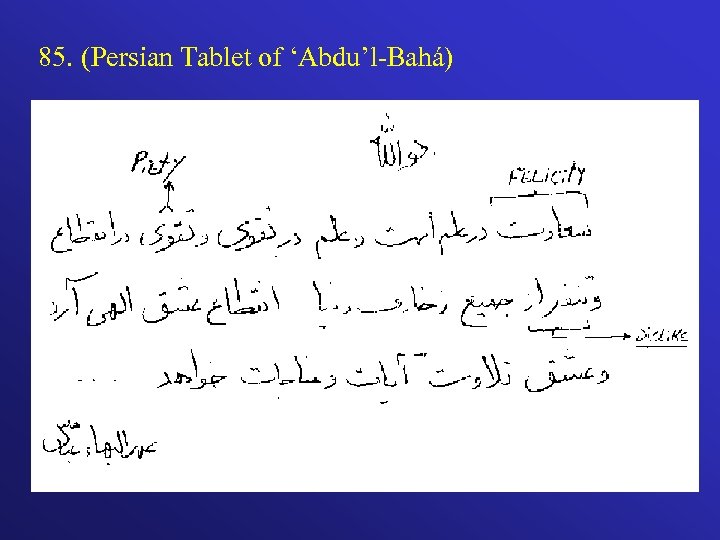 85. (Persian Tablet of ‘Abdu’l-Bahá)
هوالله
PIETY
FELICITY
سعادت در علم است و علم در تقوی و تقوی در انقطاع
و تنفر از جمیع زخارف دنیا انقطاع عشق الهی آرد
DISLIKE
و عشق تلاوت آیات و مناجات خواهد ...
عبدالبهاء عباس